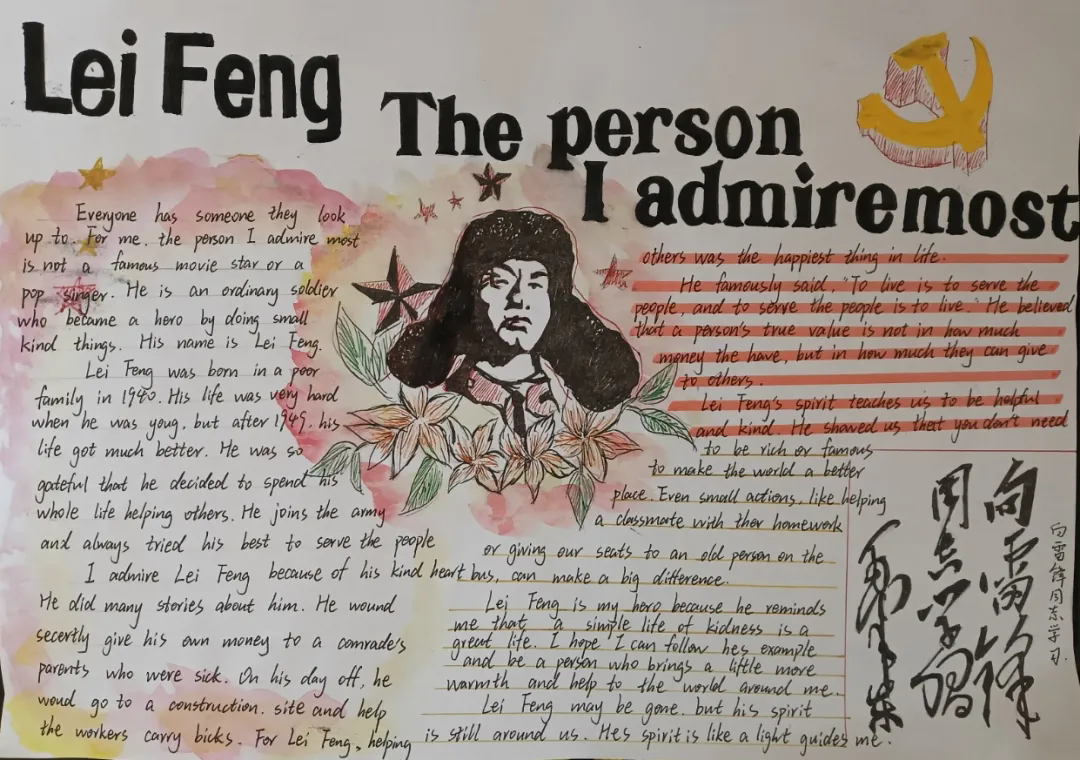 Lei Feng
The person
I admire most
Everyone has someone they look
up to. For me, the person I admire most
is not a famous movie star or a
pop singer. He is an ordinary soldier
who became a hero by doing small
kind things. His name is Lei Feng.
Lei Feng was born in a poor
family in 1940. His life was very hard
when he was youg, but after 1949, his
life got much better. He was so
gateful that he decided to spend his
whole life helping others. He joins the army
and always tried his best to serve the people
I admire Lei Feng because of his kind heart
He did many stories about him. He wound
secertly give his own money to a comrade's
parents who were sick. On his day off, he
woud go to a construction. site and help
the workers carry bicks. For Lei Feng, helping
others was the happiest thing in life.
He famously said, "To live is to serve the
people, and to serve the people is to live." He believed
that a person's true value is not in how much
money the have, but in how much they can give
to others.
Lei Feng's spirit teaches us to be helpful
and kind. He showed us that you don't need
to be rich or famous
to make the world a better
place. Even small actions, like helping
a classmate with ther homework
or giving our seats to an old person on the
bus, can make a big difference.
Lei Feng is my hero because he reminds
me that a simple life of kidness is a
great life. I hope I can follow hes example
and be a person who brings a little more
warmth and help to the world around me.
Lei Feng may be gone, but his spirit
is still around us. Hes spirit is like a light guides me.
向雷锋
同志学习
毛泽东
向雷锋同志学习